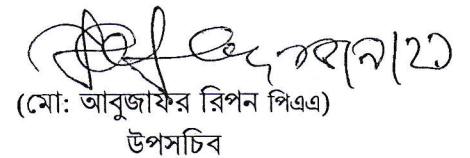 (মো: আবুজাফর রিপন পিএএ)
উপসচিব